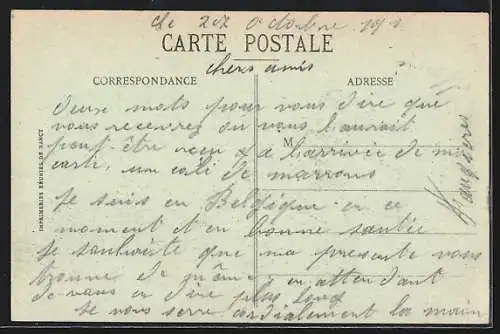 Le 22 octobre 191
CARTE POSTALE
chers amis
CORRESPONDANCE
ADRESSE
deux mots pour vous dire que
vous recevrez ou vous l'auront
M
peut être reçu à l'arrivée de ma
carte, un coli de marrons
Je suis en Belgique en ce
moment et en bonne santée
Je souhaite que ma presente vous
trouve de même en attendant
de vous en dire plus long
Je vous serre cordialement la main
IMPRIMERIES RÉUNIES DE NANCY